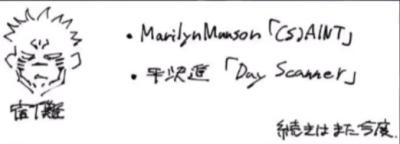 ・MarilynManson「(S)AINT」
・平沢進「Day Scanner」
宿儺
続きはまた今度.